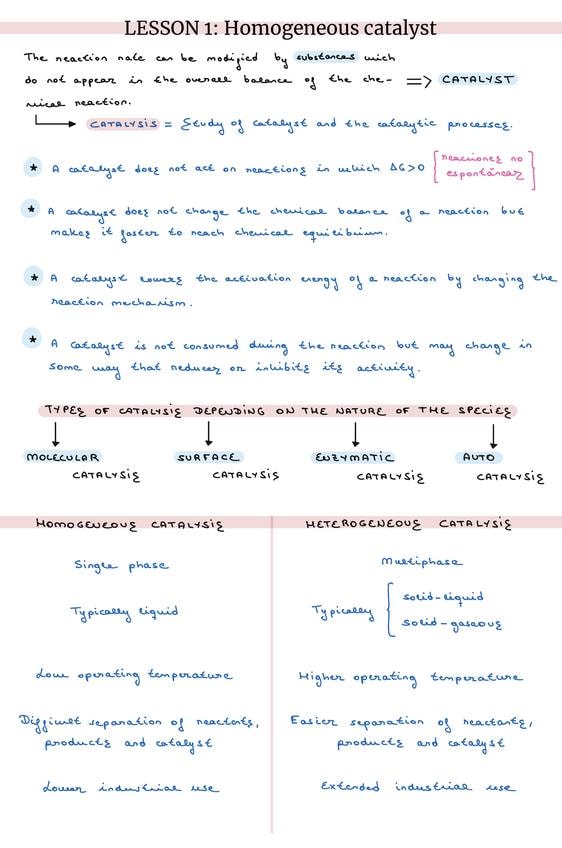 LESSON 1: Homogeneous catalyst
The reaction rate can be modified by substances wich
do not appear in the overall balance of the che- => CATALYST
mical reaction.
CATALYSIS = Study of catalyst and the catalytic processes.
* A catalyst does not act on reactions in which ΔG>0 [reacciones no
espontáneas]
* A catalyst does not change the chemical balance of a reaction but
makes it faster to reach chemical equilibrium.
* A catalyst lowers the activation energy of a reaction by changing the
reaction mechanism.
* A catalyst is not consumed during the reaction but may change in
some way that reduces or inhibits its activity.
TYPES OF CATALYSIS DEPENDING ON THE NATURE OF THE SPECIES
MOLECULAR SURFACE ENZYMATIC AUTO
CATALYSIS CATALYSIS CATALYSIS CATALYSIS
HOMOGENEOUS CATALYSIS
Single phase
Typically liquid
Low operating temperature
Difficult separation of reactants,
products and catalyst
Lower industrial use
HETEROGENEOUS CATALYSIS
Multiphase
Typically { solid-liquid
solid-gaseous
Higher operating temperature
Easier separation of reactants,
products and catalyst
Extended industrial use